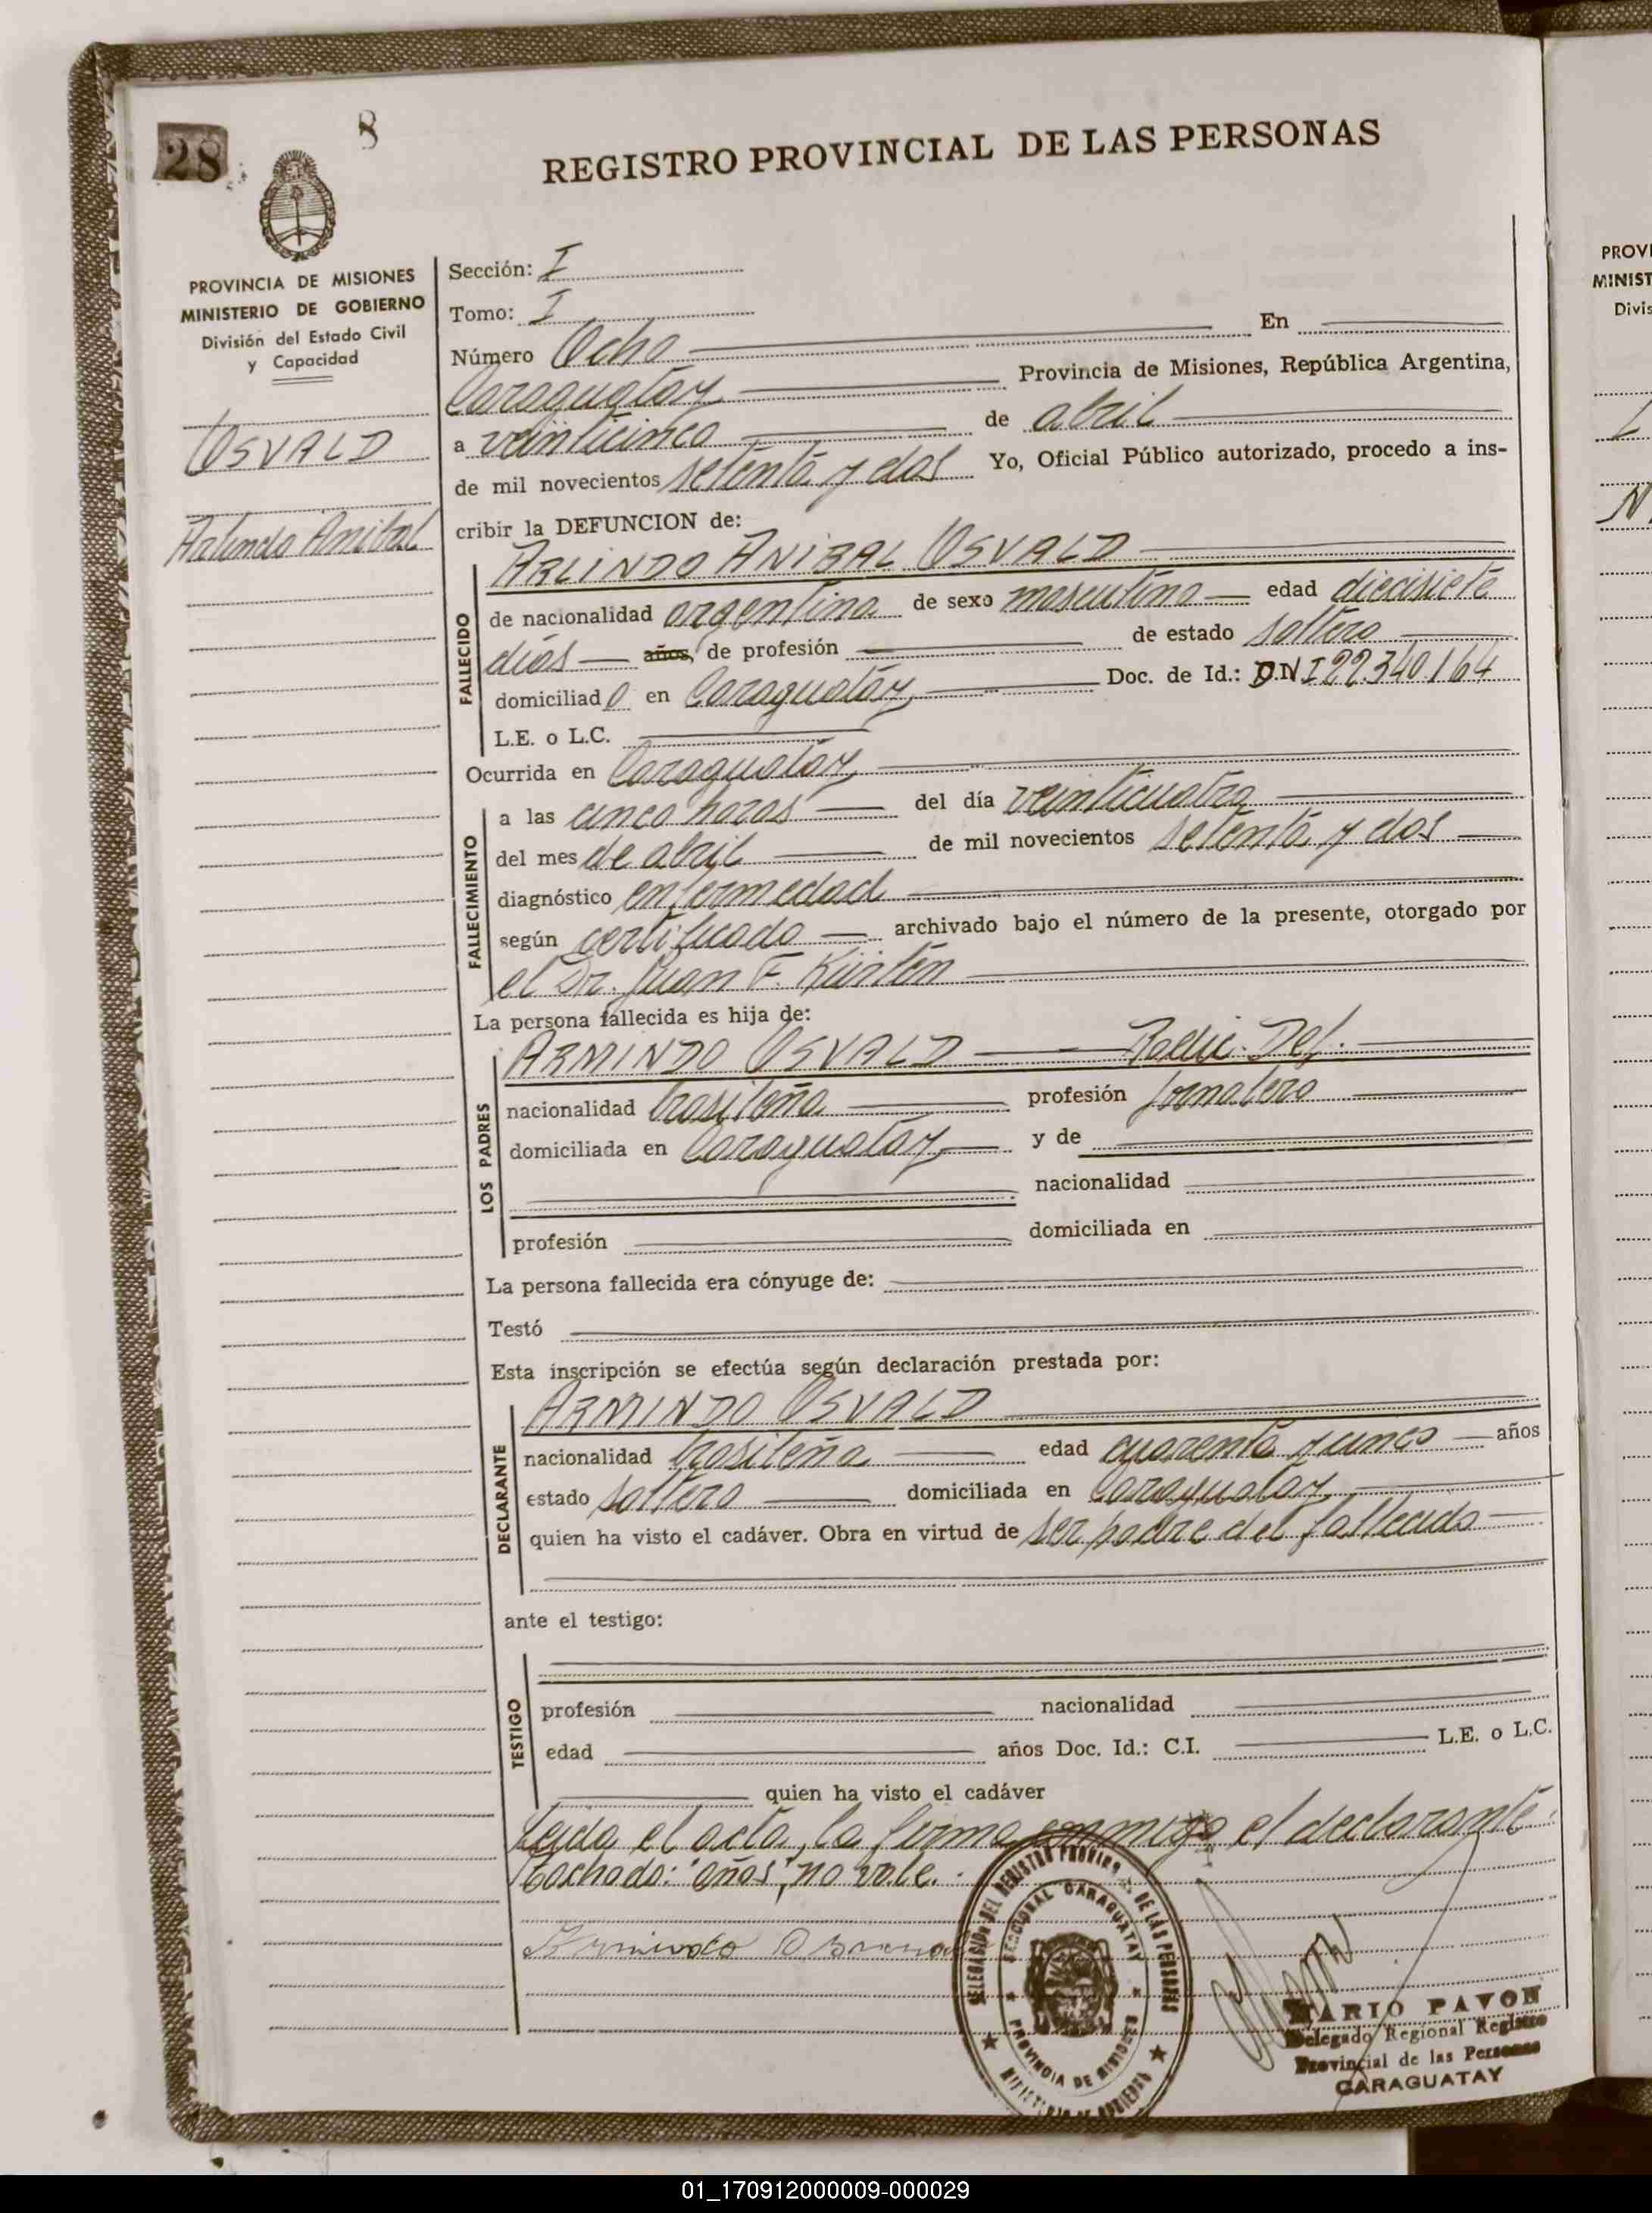 28
8
REGISTRO PROVINCIAL DE LAS PERSONAS
PROVINCIA DE MISIONES
MINISTERIO DE GOBIERNO
División del Estado Civil
y Capacidad
OSVALD
Arlindo Anibal
Sección: I
Tomo: I
Número Ocho En
Caraguatay Provincia de Misiones, República Argentina,
a veinticinco de abril
de mil novecientos setenta y dos Yo, Oficial Público autorizado, procedo a ins-
cribir la DEFUNCION de:
FALLECIDO
ARLINDO ANIBAL OSVALD
de nacionalidad argentina de sexo masculino edad diecisiete
días años, de profesión de estado soltero
domiciliado en Caraguatay Doc. de Id.: D.N.I 22.340.164
L.E. o L.C.
Ocurrida en Caraguatay
FALLECIMIENTO
a las cinco horas del día veinticuatro
del mes de abril de mil novecientos setenta y dos
diagnóstico enfermedad
según certificado archivado bajo el número de la presente, otorgado por
el Dr. Juan F. Kürten
La persona fallecida es hija de:
LOS PADRES
ARMINDO OSVALD
nacionalidad brasileña profesión jornalero
domiciliada en Caraguatay y de
nacionalidad
profesión domiciliada en
La persona fallecida era cónyuge de:
Testó
Esta inscripción se efectúa según declaración prestada por:
DECLARANTE
ARMINDO OSVALD
nacionalidad brasileña edad cuarenta y cinco años
estado soltero domiciliada en Caraguatay
quien ha visto el cadáver. Obra en virtud de ser padre del fallecido
ante el testigo:
TESTIGO
profesión nacionalidad
edad años Doc. Id.: C.I. L.E. o L.C.
quien ha visto el cadáver
Leida el acta, la firma conmigo el declarante.
Tachado: "años", no vale.
DELEGACION DEL REGISTRO PROVINCIAL DE LAS PERSONAS
SECCIONAL CARAGUATAY
PROVINCIA DE MISIONES
MINISTERIO DE GOBIERNO
MARIO PAVON
Delegado Regional Registro
Provincial de las Personas
CARAGUATAY
PROVI
MINIST
Divis
01_170912000009-000029